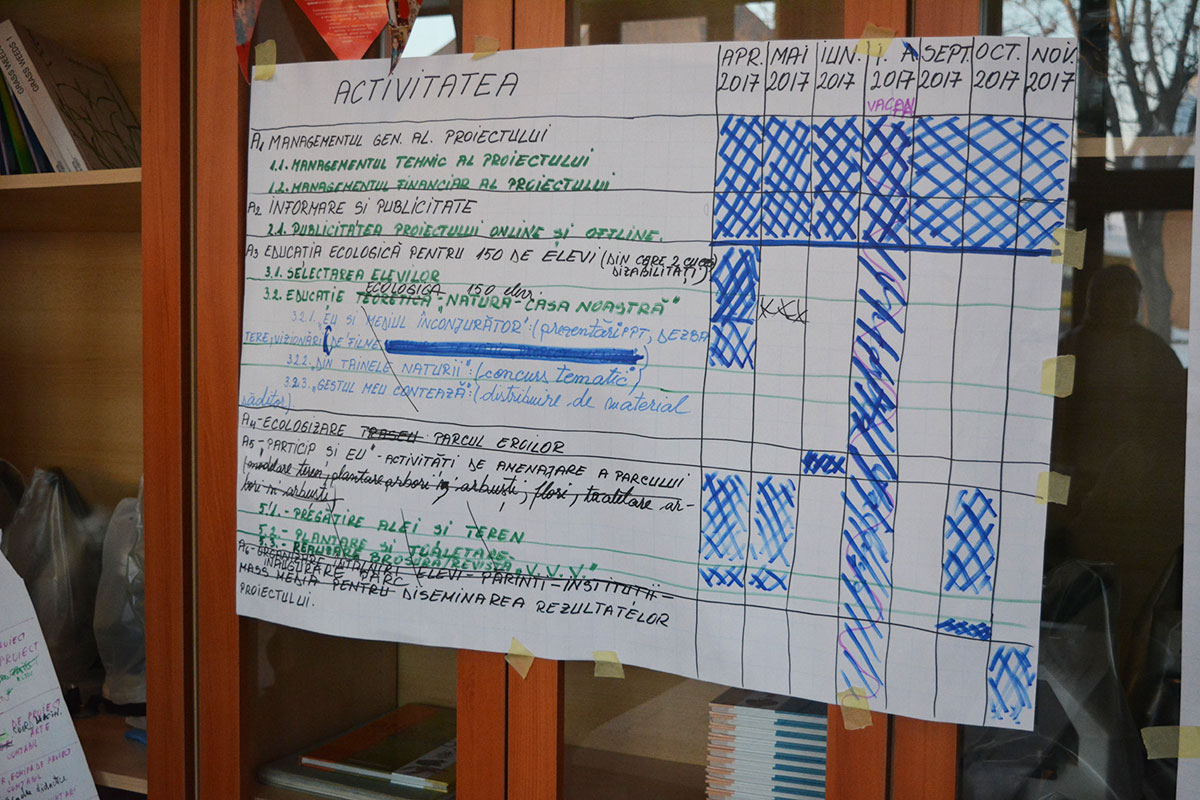 GRASS WEEDS 1
ACTIVITATEA
APR. 2017
MAI 2017
IUN. 2017
2017
VACAN
SEPT. 2017
OCT. 2017
NOV. 2017
A1 MANAGEMENTUL GEN. AL. PROIECTULUI
1.1. MANAGEMENTUL TEHNIC AL PROIECTULUI
1.2. MANAGEMENTUL FINANCIAR AL PROIECTULUI
A2 INFORMARE SI PUBLICITATE
2.1. PUBLICITATEA PROIECTULUI ONLINE ȘI OFFLINE.
A3 EDUCAȚIA ECOLOGICĂ PENTRU 150 DE ELEVI (DIN CARE 2 CU
DIZABILITĂȚI)
3.1. SELECTAREA ELEVILOR
ECOLOGICA 150 elevi
3.2. EDUCATIE TEORETICA "NATURA-CASA NOASTRĂ"
3.2.1. "EU SI MEDIUL ÎNCONJURĂTOR": (prezentări PPT, DEZBA
TERE, VIZIONĂRI DE FILME )
3.2.2. "DIN TAINELE NATURII": (concurs tematic)
3.2.3. "GESTUL MEU CONTEAZĂ": (distribuire de material
săditor)
A4-ECOLOGIZARE TRASEU PARCUL EROILOR
A5-"PARTICIP SI EU"-ACTIVITĂȚI DE AMENAJARE A PARCULUI
(modelare teren, plantare arbori și arbuști, flori, toaletare ar-
bori și arbuști
5.1.-PREGĂTIRE ALEI SI TEREN
5.2.-PLANTARE SI TOALETARE
5.3.-REALIZARE BROSURA/REVISTA "V.V.V"
A6-ORGANIZARE INTALNIRI ELEVI-PĂRINȚI-INSTITUTII-
INAUGURARE PARC
MASS MEDIA PENTRU DISEMINAREA REZULTATELOR
PROIECTULUI.
PROIECT
DE PROIECT
ARTE